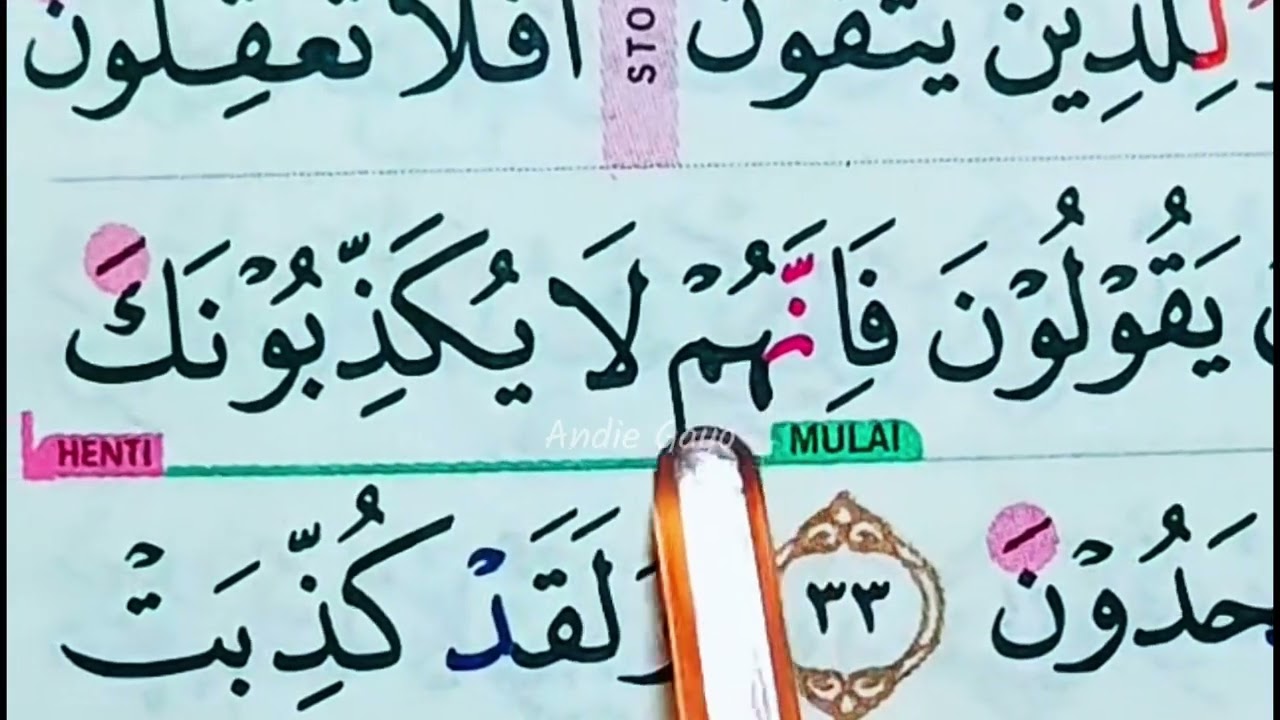 لِلَّذِينَ يَتَّقُونَ STO أَفَلَا تَعْقِلُونَ
يَقُوْلُوْنَ فَاِنَّهُمْ لَا يُكَذِّبُوْنَكَ
HENTI Andie Gayo MULAI
حَدُوْنَ ٣٣ وَلَقَدْ كُذِّبَتْ